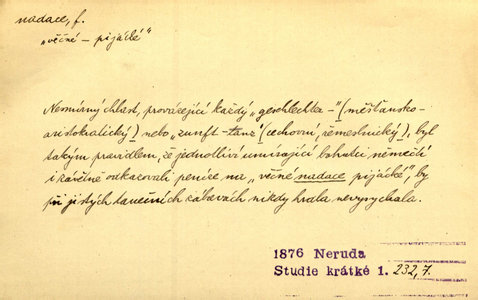 nadace, f.
„věčné – pijácké"
Nesmírný chlast, provázející každý „geschlechter-"(měšťansko-
aristokratický) nebo „zunft-tanz" (cechovní, řemeslnický), byl
takým pravidlem, že jednotliví umírající boháči němečtí
i závětně odkazovali peníze na „věčné nadace pijácké", by
při jistých tanečních zábavách nikdy hrdla nevysychala.
1876 Neruda
Studie krátké 1. 232,7.